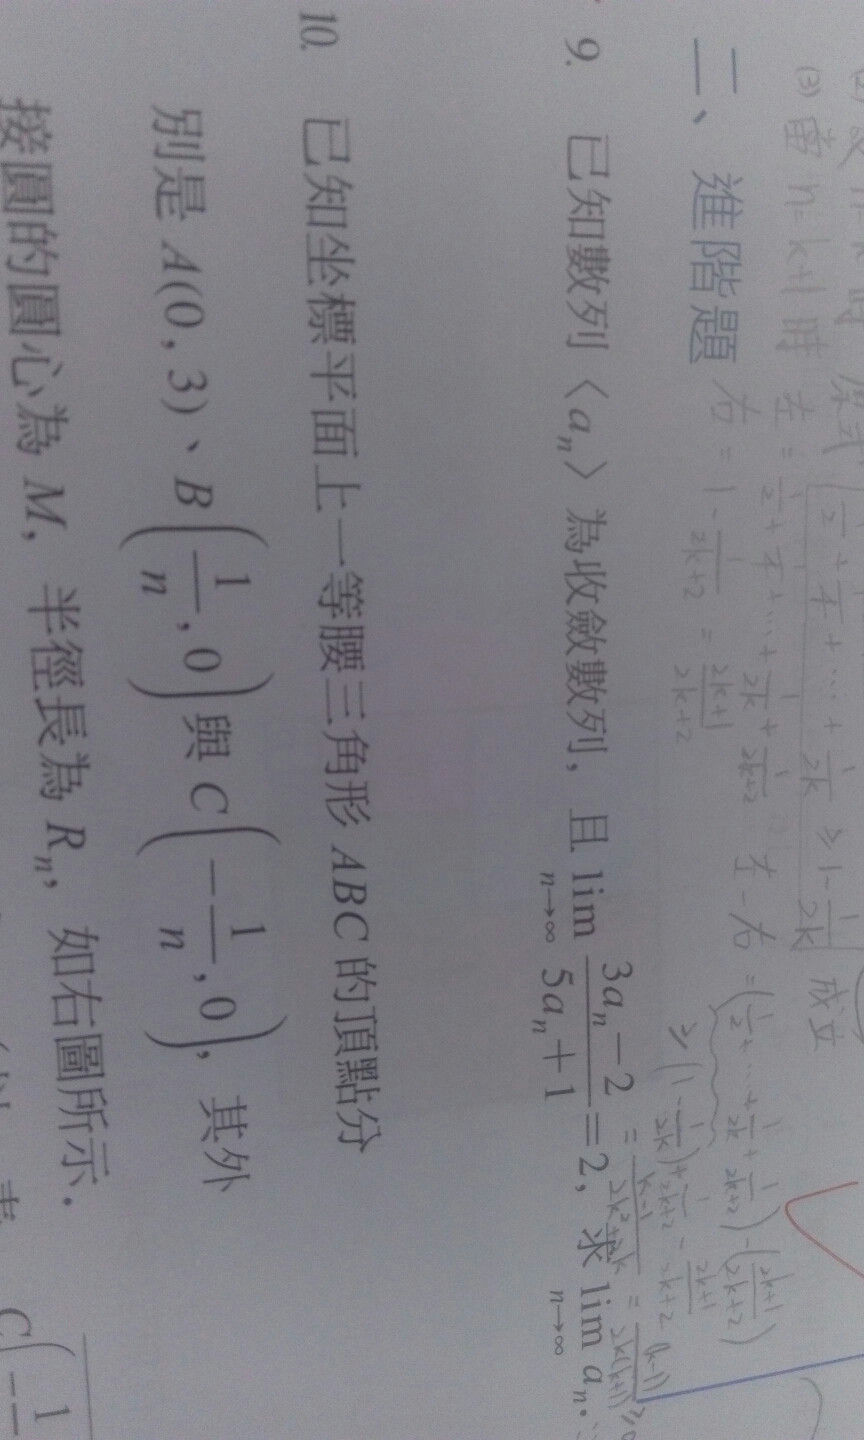 (3) 當 n=k+1 時 左 = 1/2 + 1/4 + ... + 1/2k + 1/2k+2 左-右 = (1/2 + ... + 1/2k + 1/2k+2) - (2k+1/2k+2)
二、進階題 右 = 1 - 1/2k+2 = 2k+1/2k+2 ≥ (1 - 1/2k) + 1/2k+2 - 2k+1/2k+2
= k-1/2k²+2k = (k-1)/2k(k+1) ≥0
9. 已知數列〈aₙ〉為收斂數列,且 lim n→∞ 3aₙ-2/5aₙ+1 =2,求 lim n→∞ aₙ.
10. 已知坐標平面上一等腰三角形 ABC 的頂點分
別是 A(0, 3)、B(1/n, 0)與 C(-1/n, 0),其外
接圓的圓心為 M,半徑長為 Rₙ,如右圖所示.
C(-1